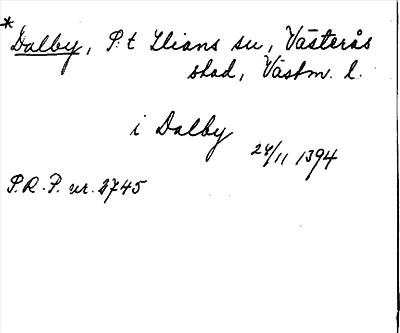 * Dalby, P:t Ilians sn, Västerås
stad, Västm. l.
i Dalby
24/11 1394
P.R.P. nr. 2745